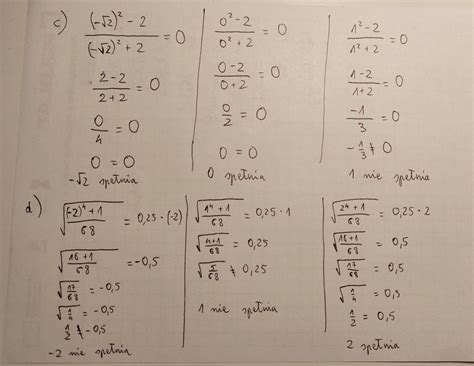 c) ((-√2)² - 2)/((-√2)² + 2) = 0
(2-2)/(2+2) = 0
0/4 = 0
0 = 0
-√2 spełnia
(0² - 2)/(0² + 2) = 0
(0-2)/(0+2) = 0
0/2 = 0
0 = 0
0 spełnia
(1² - 2)/(1² + 2) = 0
(1-2)/(1+2) = 0
-1/3 = 0
-1/3 ≠ 0
1 nie spełnia
d) √(((-2)⁴ + 1)/68) = 0,25 · (-2)
√((16+1)/68) = -0,5
√(17/68) = -0,5
√(1/4) = -0,5
1/2 ≠ -0,5
-2 nie spełnia
√((1⁴+1)/68) = 0,25 · 1
√((4+1)/68) = 0,25
√(5/68) ≠ 0,25
1 nie spełnia
√((2⁴+1)/68) = 0,25 · 2
√((16+1)/68) = 0,5
√(17/68) = 0,5
√(1/4) = 0,5
1/2 = 0,5
2 spełnia